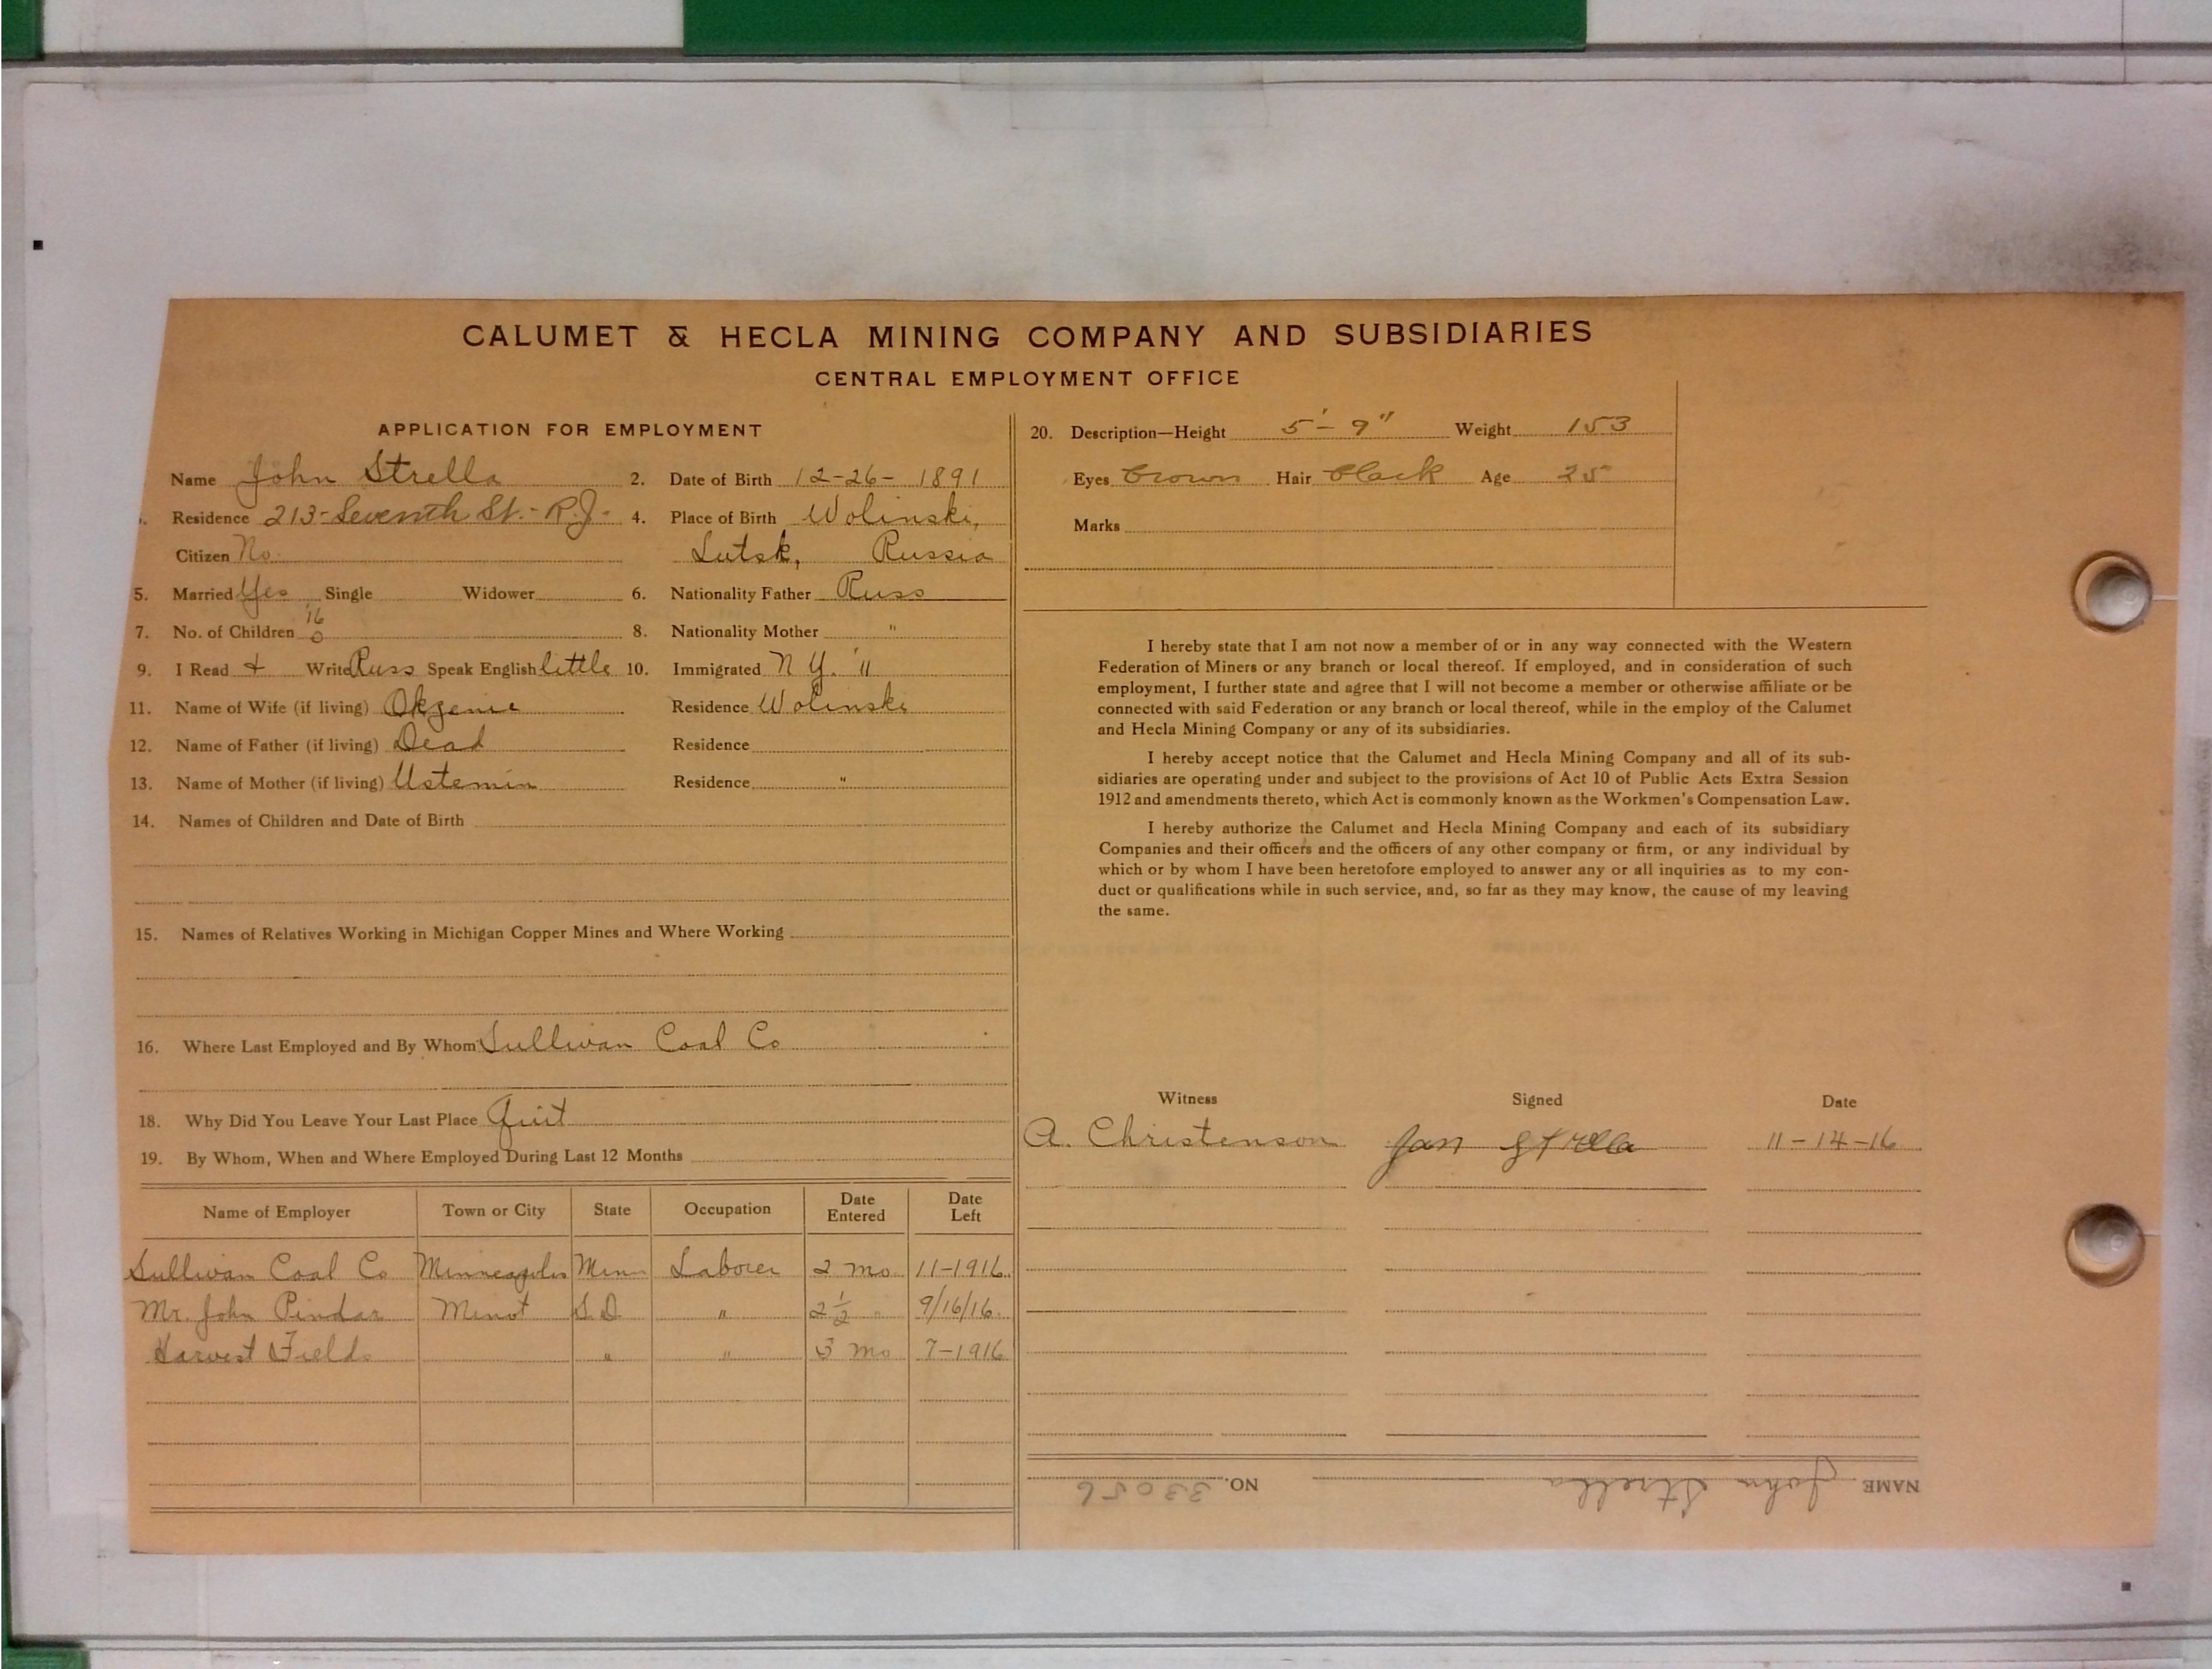 CALUMET & HECLA MINING COMPANY AND SUBSIDIARIES
CENTRAL EMPLOYMENT OFFICE
APPLICATION FOR EMPLOYMENT
Name John Strella 2. Date of Birth 12-26-1891
Residence 213-Seventh St.- R.J. 4. Place of Birth Wolinski,
Citizen No. Lutsk, Russia
5. Married Yes Single Widower 6. Nationality Father Russ
7. No. of Children 0 '16 8. Nationality Mother "
9. I Read + Write Russ Speak English little 10. Immigrated N Y. '11
11. Name of Wife (if living) Okzenie Residence Wolinski
12. Name of Father (if living) Dead Residence
13. Name of Mother (if living) Ustemin Residence "
14. Names of Children and Date of Birth
15. Names of Relatives Working in Michigan Copper Mines and Where Working
16. Where Last Employed and By Whom Sullivan Coal Co
18. Why Did You Leave Your Last Place Quit
19. By Whom, When and Where Employed During Last 12 Months
Name of Employer Town or City State Occupation Date Entered Date Left
Sullivan Coal Co Minneapolis Minn Laborer 2 mo 11-1916
Mr. John Pindar Minot S.D. " 2 1/2 " 9/16/16
Harvest Fields " " 3 mo 7-1916
20. Description—Height 5'-9" Weight 153
Eyes brown Hair black Age 25
Marks
I hereby state that I am not now a member of or in any way connected with the Western
Federation of Miners or any branch or local thereof. If employed, and in consideration of such
employment, I further state and agree that I will not become a member or otherwise affiliate or be
connected with said Federation or any branch or local thereof, while in the employ of the Calumet
and Hecla Mining Company or any of its subsidiaries.
I hereby accept notice that the Calumet and Hecla Mining Company and all of its sub-
sidiaries are operating under and subject to the provisions of Act 10 of Public Acts Extra Session
1912 and amendments thereto, which Act is commonly known as the Workmen's Compensation Law.
I hereby authorize the Calumet and Hecla Mining Company and each of its subsidiary
Companies and their officers and the officers of any other company or firm, or any individual by
which or by whom I have been heretofore employed to answer any or all inquiries as to my con-
duct or qualifications while in such service, and, so far as they may know, the cause of my leaving
the same.
Witness Signed Date
A. Christenson Jan Strella 11-14-16
NAME John Strella NO. 33056